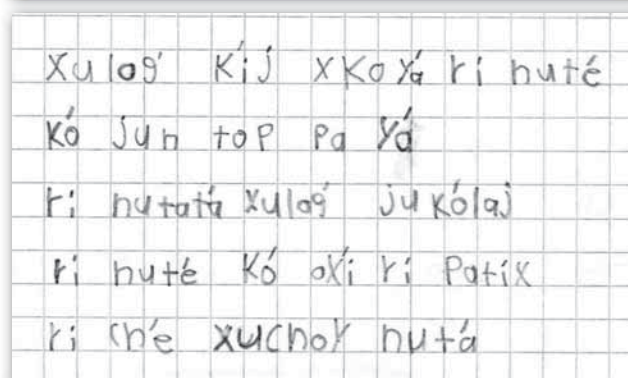 Xuloq' K'ij xkoya' ri nute'
K'o jun top pa ya'
ri nutata' xuloq' juk'olaj
ri nute' K'o oxi' ri Patix
ri che' xuchoy nuta'